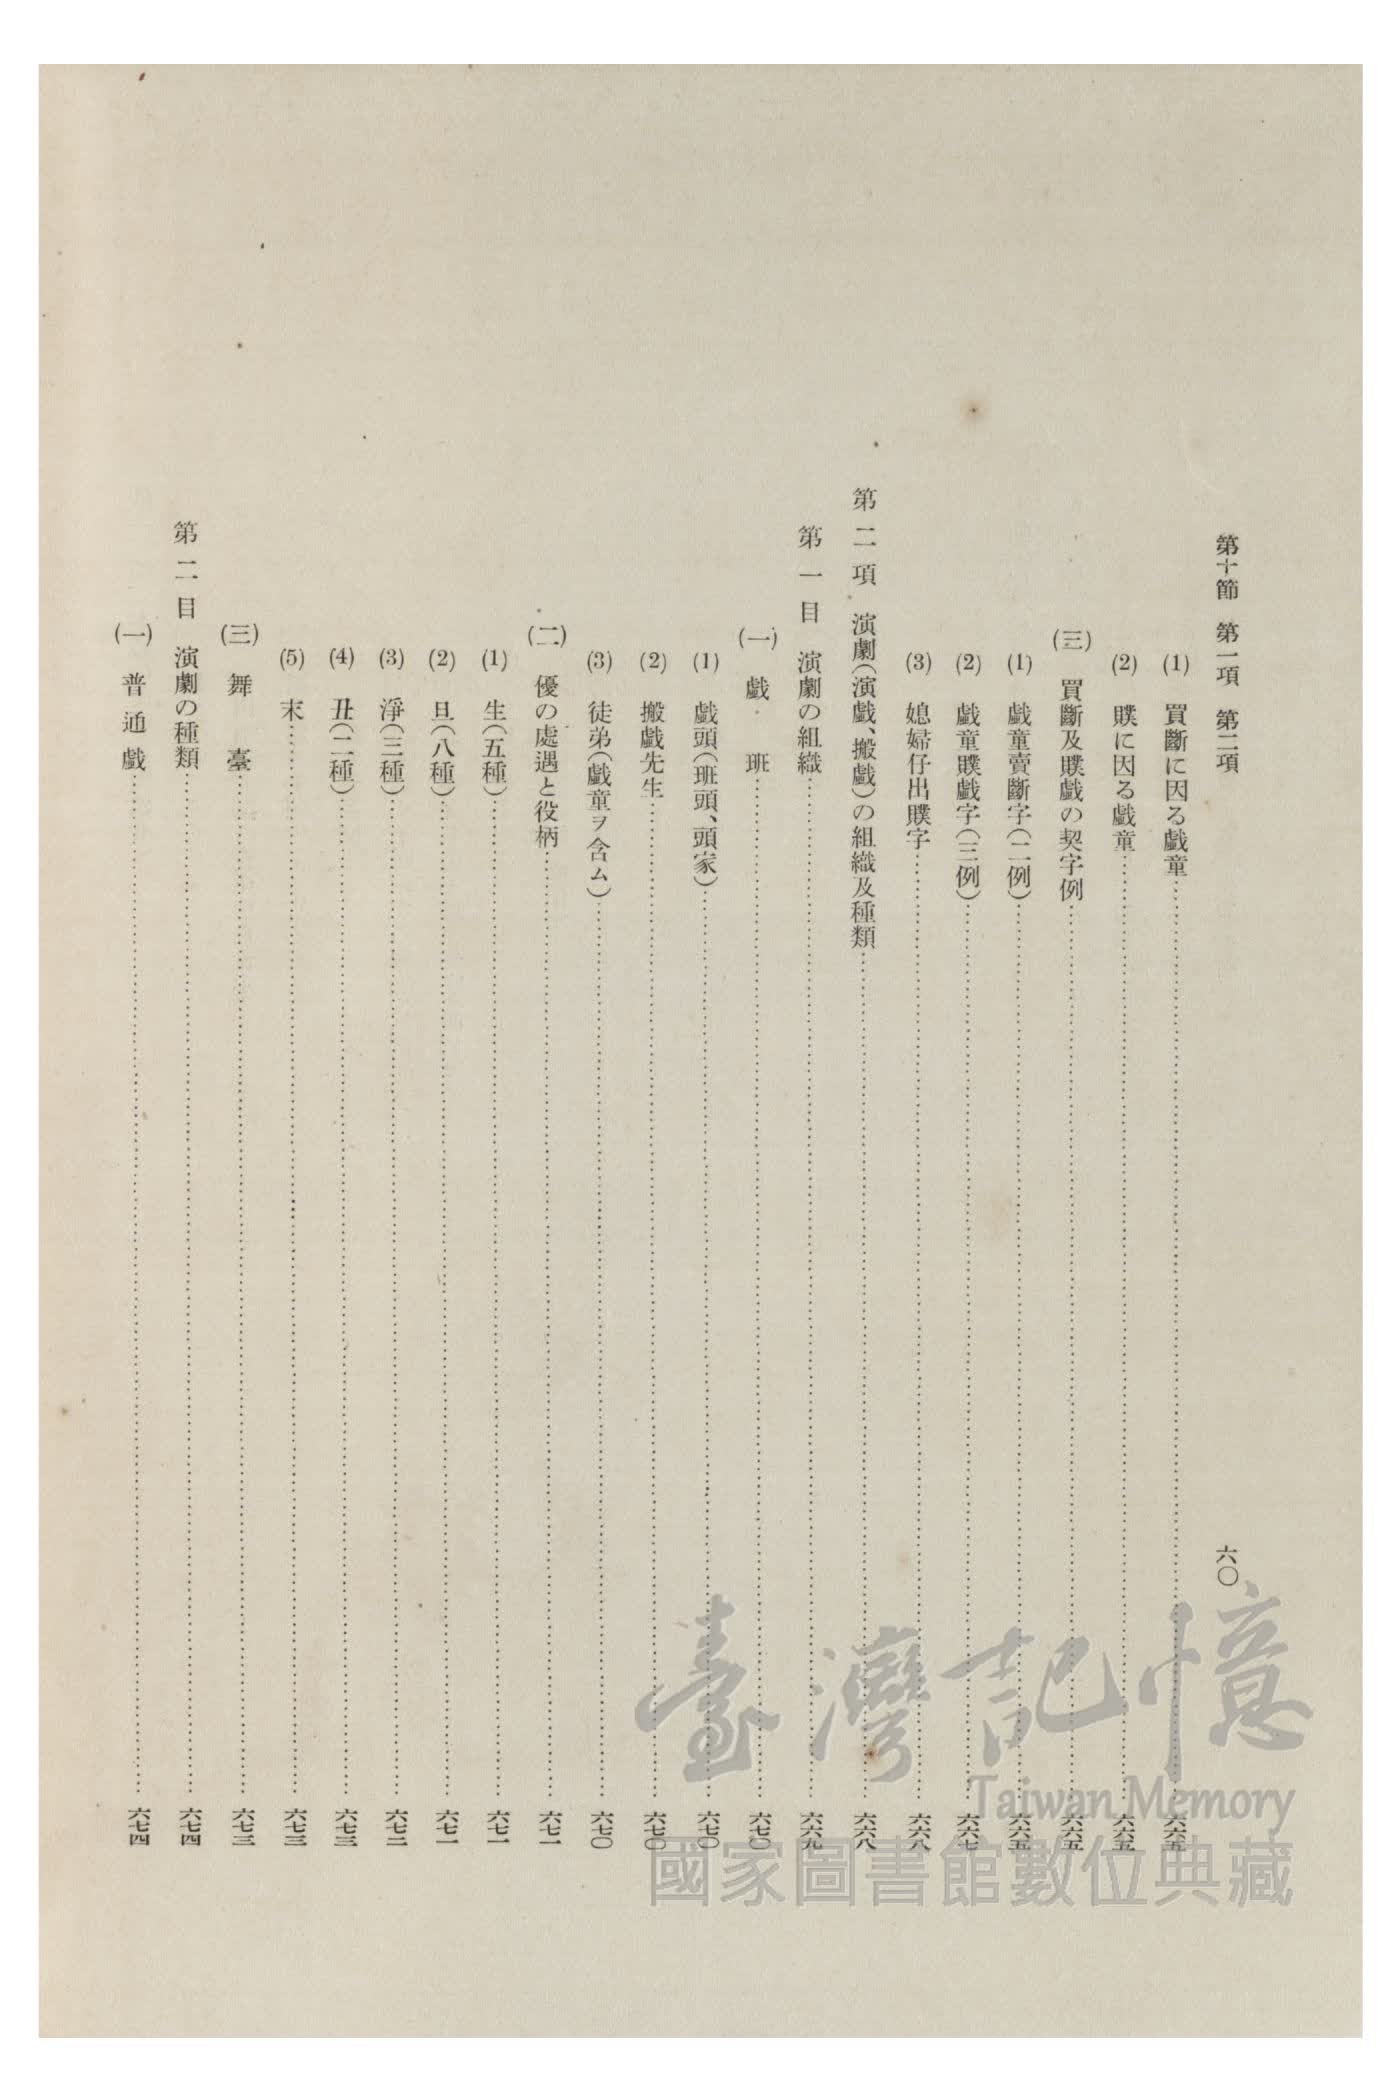 第十節　第一項　第二項
六〇
(1)　買斷に因る戲童……六六五
(2)　贌に因る戲童……六六五
(三)　買斷及贌戲の契字例……六六五
(1)　戲童賣斷字(二例)……六六五
(2)　戲童贌戲字(三例)……六六七
(3)　媳婦仔出贌字……六六八
第二項　演劇(演戲、搬戲)の組織及種類……六六八
第一目　演劇の組織……六六九
(一)　戲班……六七〇
(1)　戲頭(班頭、頭家)……六七〇
(2)　搬戲先生……六七〇
(3)　徒弟(戲童ヲ含ム)……六七〇
(二)　優の處遇と役柄……六七一
(1)　生(五種)……六七一
(2)　旦(八種)……六七一
(3)　淨(三種)……六七二
(4)　丑(二種)……六七三
(5)　末……六七三
(三)　舞臺……六七三
第二目　演劇の種類……六七四
(一)　普通戲……六七四
臺灣記憶
Taiwan Memory
國家圖書館數位典藏